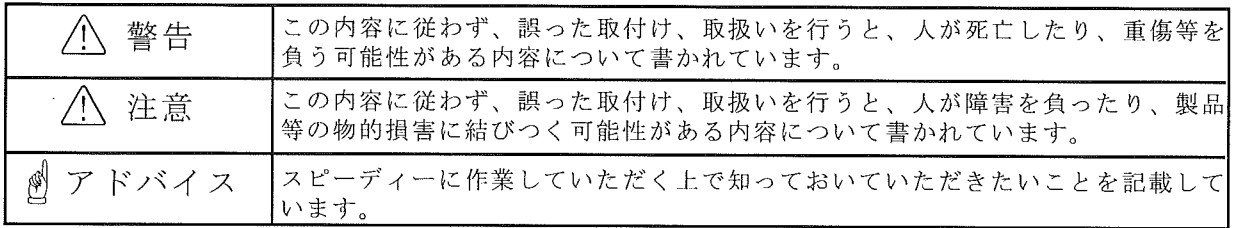 警告
この内容に従わず、誤った取付け、取扱いを行うと、人が死亡したり、重傷等を
負う可能性がある内容について書かれています。
注意
この内容に従わず、誤った取付け、取扱いを行うと、人が障害を負ったり、製品
等の物的損害に結びつく可能性がある内容について書かれています。
アドバイス
スピーディーに作業していただく上で知っておいていただきたいことを記載して
います。